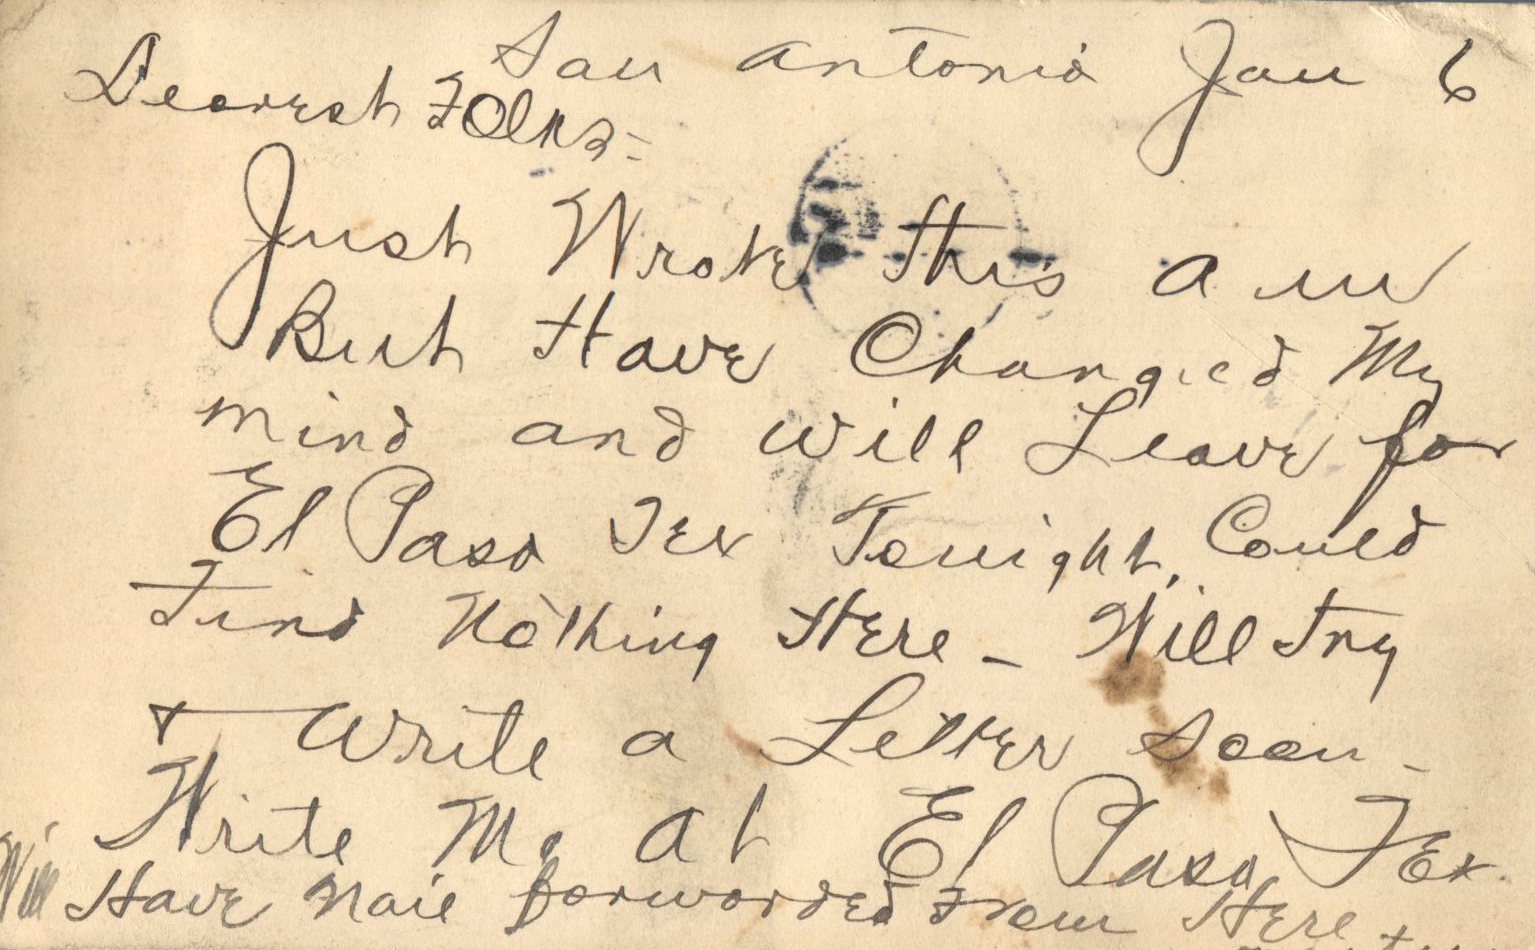 San Antonio Jan 6
Dearest Folks:-
Just Wrote this a m
But Have Changed My
mind and will Leave for
El Paso Tex Tonight, Could
Find Nothing Here - Will Try
+ write a Letter soon -
Write Me At El Paso, Tex.
Will Have Mail forwarded From Here +